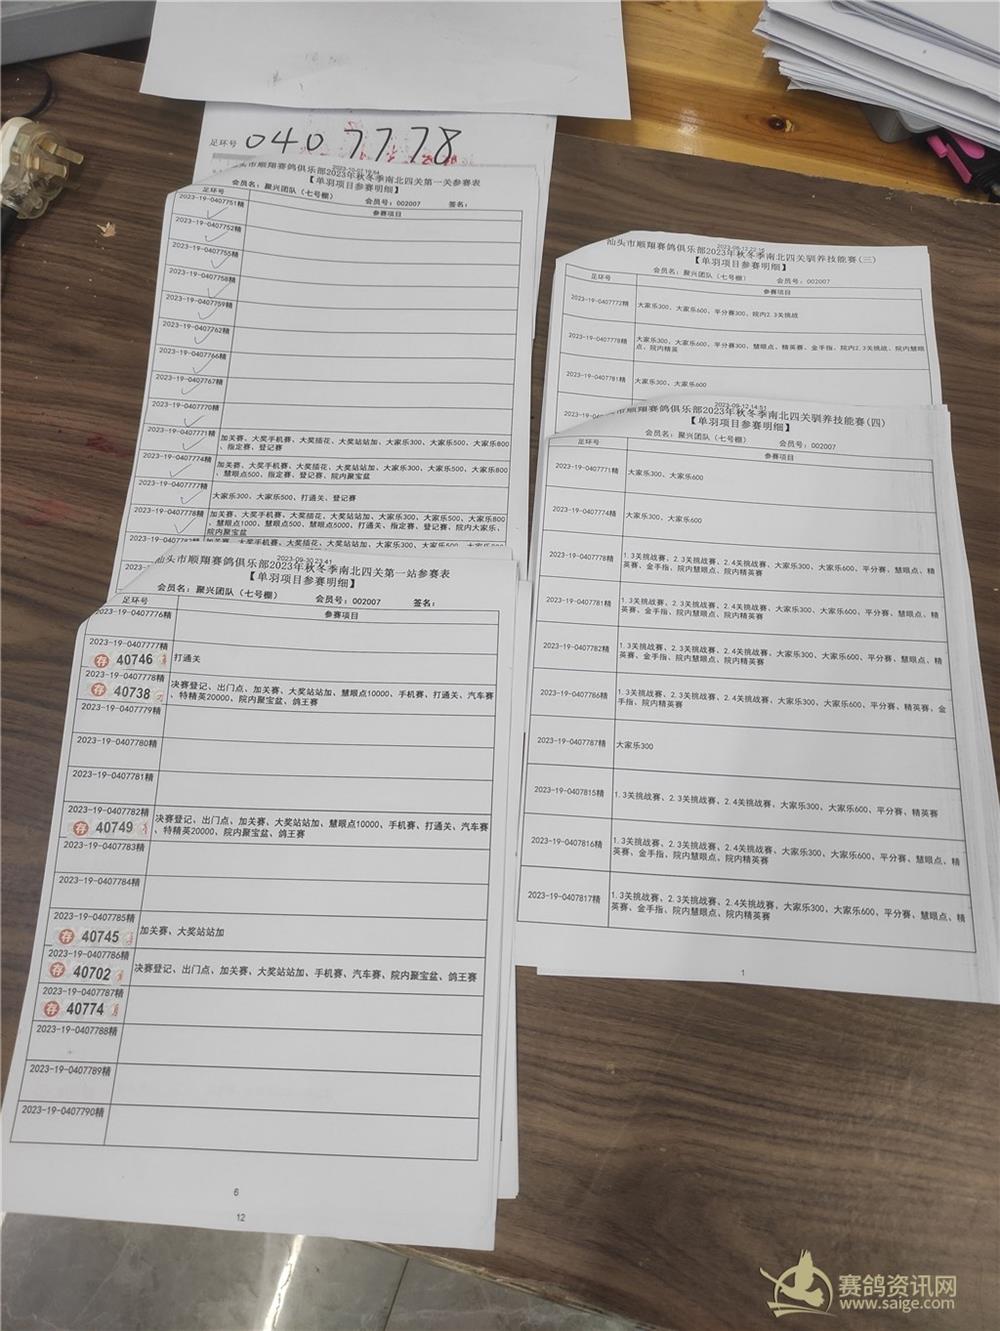 足环号 0407778
2023-10-07 19:54
头市顺翔赛鸽俱乐部2023年秋冬季南北四关第一关参赛表
【单羽项目参赛明细】
会员名：聚兴团队（七号棚） 会员号：002007 签名：
足环号 参赛项目
2023-19-0407751精
2023-19-0407752精
2023-19-0407755精
2023-19-0407758精
2023-19-0407759精
2023-19-0407762精
2023-19-0407766精
2023-19-0407767精
2023-19-0407770精
2023-19-0407771精 加关赛、大奖手机赛、大奖插花、大奖站站加、大家乐300、大家乐500、大家乐800
、指定赛、登记赛
2023-19-0407774精 加关赛、大奖手机赛、大奖插花、大奖站站加、大家乐300、大家乐500、大家乐800
、慧眼点500、指定赛、登记赛、院内聚宝盆
2023-19-0407777精 大家乐300、大家乐500、打通关、登记赛
2023-19-0407778精 加关赛、大奖手机赛、大奖插花、大奖站站加、大家乐300、大家乐500、大家乐800
、慧眼点1000、慧眼点500、慧眼点5000、打通关、指定赛、登记赛、院内大家乐、
院内聚宝盆
2023-19-0407782精 加关赛、大奖手机赛、大奖插花、大奖站站加、大家乐300、大家乐500、大家乐800
2023-09-30 23:41
汕头市顺翔赛鸽俱乐部2023年秋冬季南北四关第一站参赛表
【单羽项目参赛明细】
会员名：聚兴团队（七号棚） 会员号：002007 签名：
足环号 参赛项目
2023-19-0407776精
2023-19-0407777精
存 40746 打通关
2023-19-0407778精
存 40738 决赛登记、出门点、加关赛、大奖站站加、慧眼点10000、手机赛、打通关、汽车赛
、特精英20000、院内聚宝盆、鸽王赛
2023-19-0407779精
2023-19-0407780精
2023-19-0407781精
2023-19-0407782精
存 40749 决赛登记、出门点、加关赛、大奖站站加、慧眼点10000、手机赛、打通关、汽车赛
、特精英20000、院内聚宝盆、鸽王赛
2023-19-0407783精
2023-19-0407784精
2023-19-0407785精
存 40745 加关赛、大奖站站加
2023-19-0407786精
存 40702 决赛登记、出门点、加关赛、大奖站站加、手机赛、汽车赛、院内聚宝盆、鸽王赛
2023-19-0407787精
存 40774
2023-19-0407788精
2023-19-0407789精
2023-19-0407790精
6
12
汕头市顺翔赛鸽俱乐部2023年秋冬季南北四关驯养技能赛(三)
【单羽项目参赛明细】
会员名：聚兴团队（七号棚） 会员号：002007
足环号 参赛项目
2023-19-0407772精 大家乐300、大家乐600、平分赛300、院内2.3关挑战
2023-19-0407778精 大家乐300、大家乐600、平分赛300、慧眼点、精英赛、金手指、院内2.3关挑战、院内慧眼
点、院内精英
2023-19-0407781精 大家乐300、大家乐600
2023-09-12 14:51
市顺翔赛鸽俱乐部2023年秋冬季南北四关驯养技能赛(四)
【单羽项目参赛明细】
会员名：聚兴团队（七号棚） 会员号：002007
足环号 参赛项目
2023-19-0407771精 大家乐300、大家乐600
2023-19-0407774精 大家乐300、大家乐600
2023-19-0407778精 1.3关挑战赛、2.3关挑战赛、2.4关挑战赛、大家乐300、大家乐600、平分赛、慧眼点、精
英赛、金手指、院内慧眼点、院内精英赛
2023-19-0407781精 1.3关挑战赛、2.3关挑战赛、2.4关挑战赛、大家乐300、大家乐600、平分赛、慧眼点、精
英赛、金手指、院内慧眼点、院内精英赛
2023-19-0407782精 1.3关挑战赛、2.3关挑战赛、2.4关挑战赛、大家乐300、大家乐600、平分赛、慧眼点、精
英赛、金手指、院内慧眼点、院内精英赛
2023-19-0407786精 1.3关挑战赛、2.3关挑战赛、2.4关挑战赛、大家乐300、大家乐600、平分赛、精英赛、金
手指、院内精英赛
2023-19-0407787精 大家乐300
2023-19-0407815精 1.3关挑战赛、2.3关挑战赛、2.4关挑战赛、大家乐300、大家乐600、平分赛、精英赛
2023-19-0407816精 1.3关挑战赛、2.3关挑战赛、2.4关挑战赛、大家乐300、大家乐600、平分赛、慧眼点、精
英赛、金手指、院内慧眼点、院内精英赛
2023-19-0407817精 1.3关挑战赛、2.3关挑战赛、2.4关挑战赛、大家乐300、大家乐600、平分赛、慧眼点、精
英赛、金手指、院内慧眼点、院内精英赛
1
赛鸽资讯网
www.saige.com